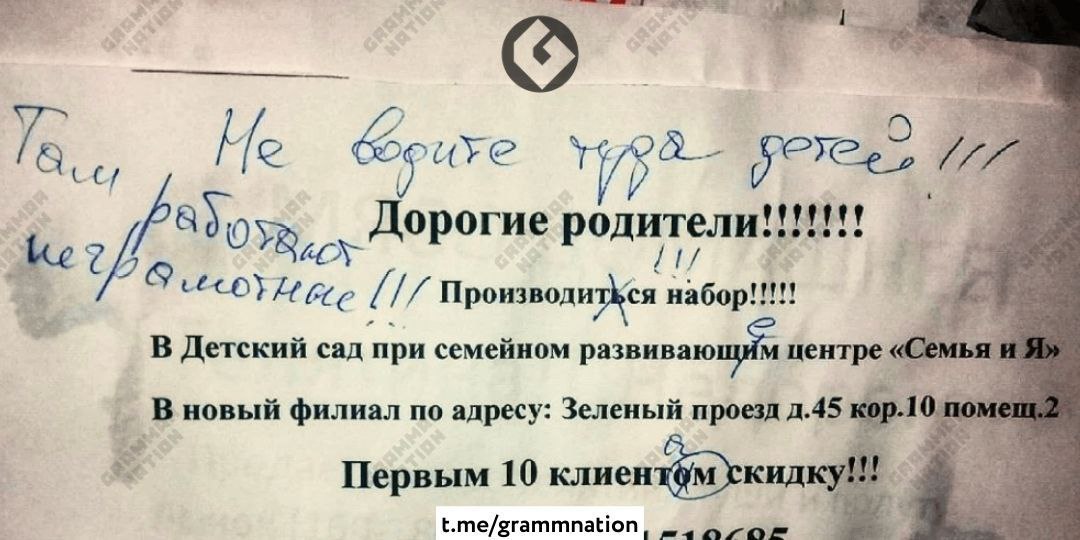 Там Не водите туда детей!!!
работают
неграмотные!!!
Дорогие родители!!!!!!!
!!!
Производиться набор!!!!!
е
В Детский сад при семейном развивающим центре «Семья и Я»
В новый филиал по адресу: Зеленый проезд д.45 кор.10 помещ.2
а
Первым 10 клиентом скидку!!!
t.me/grammnation
GRAMMAR NATION